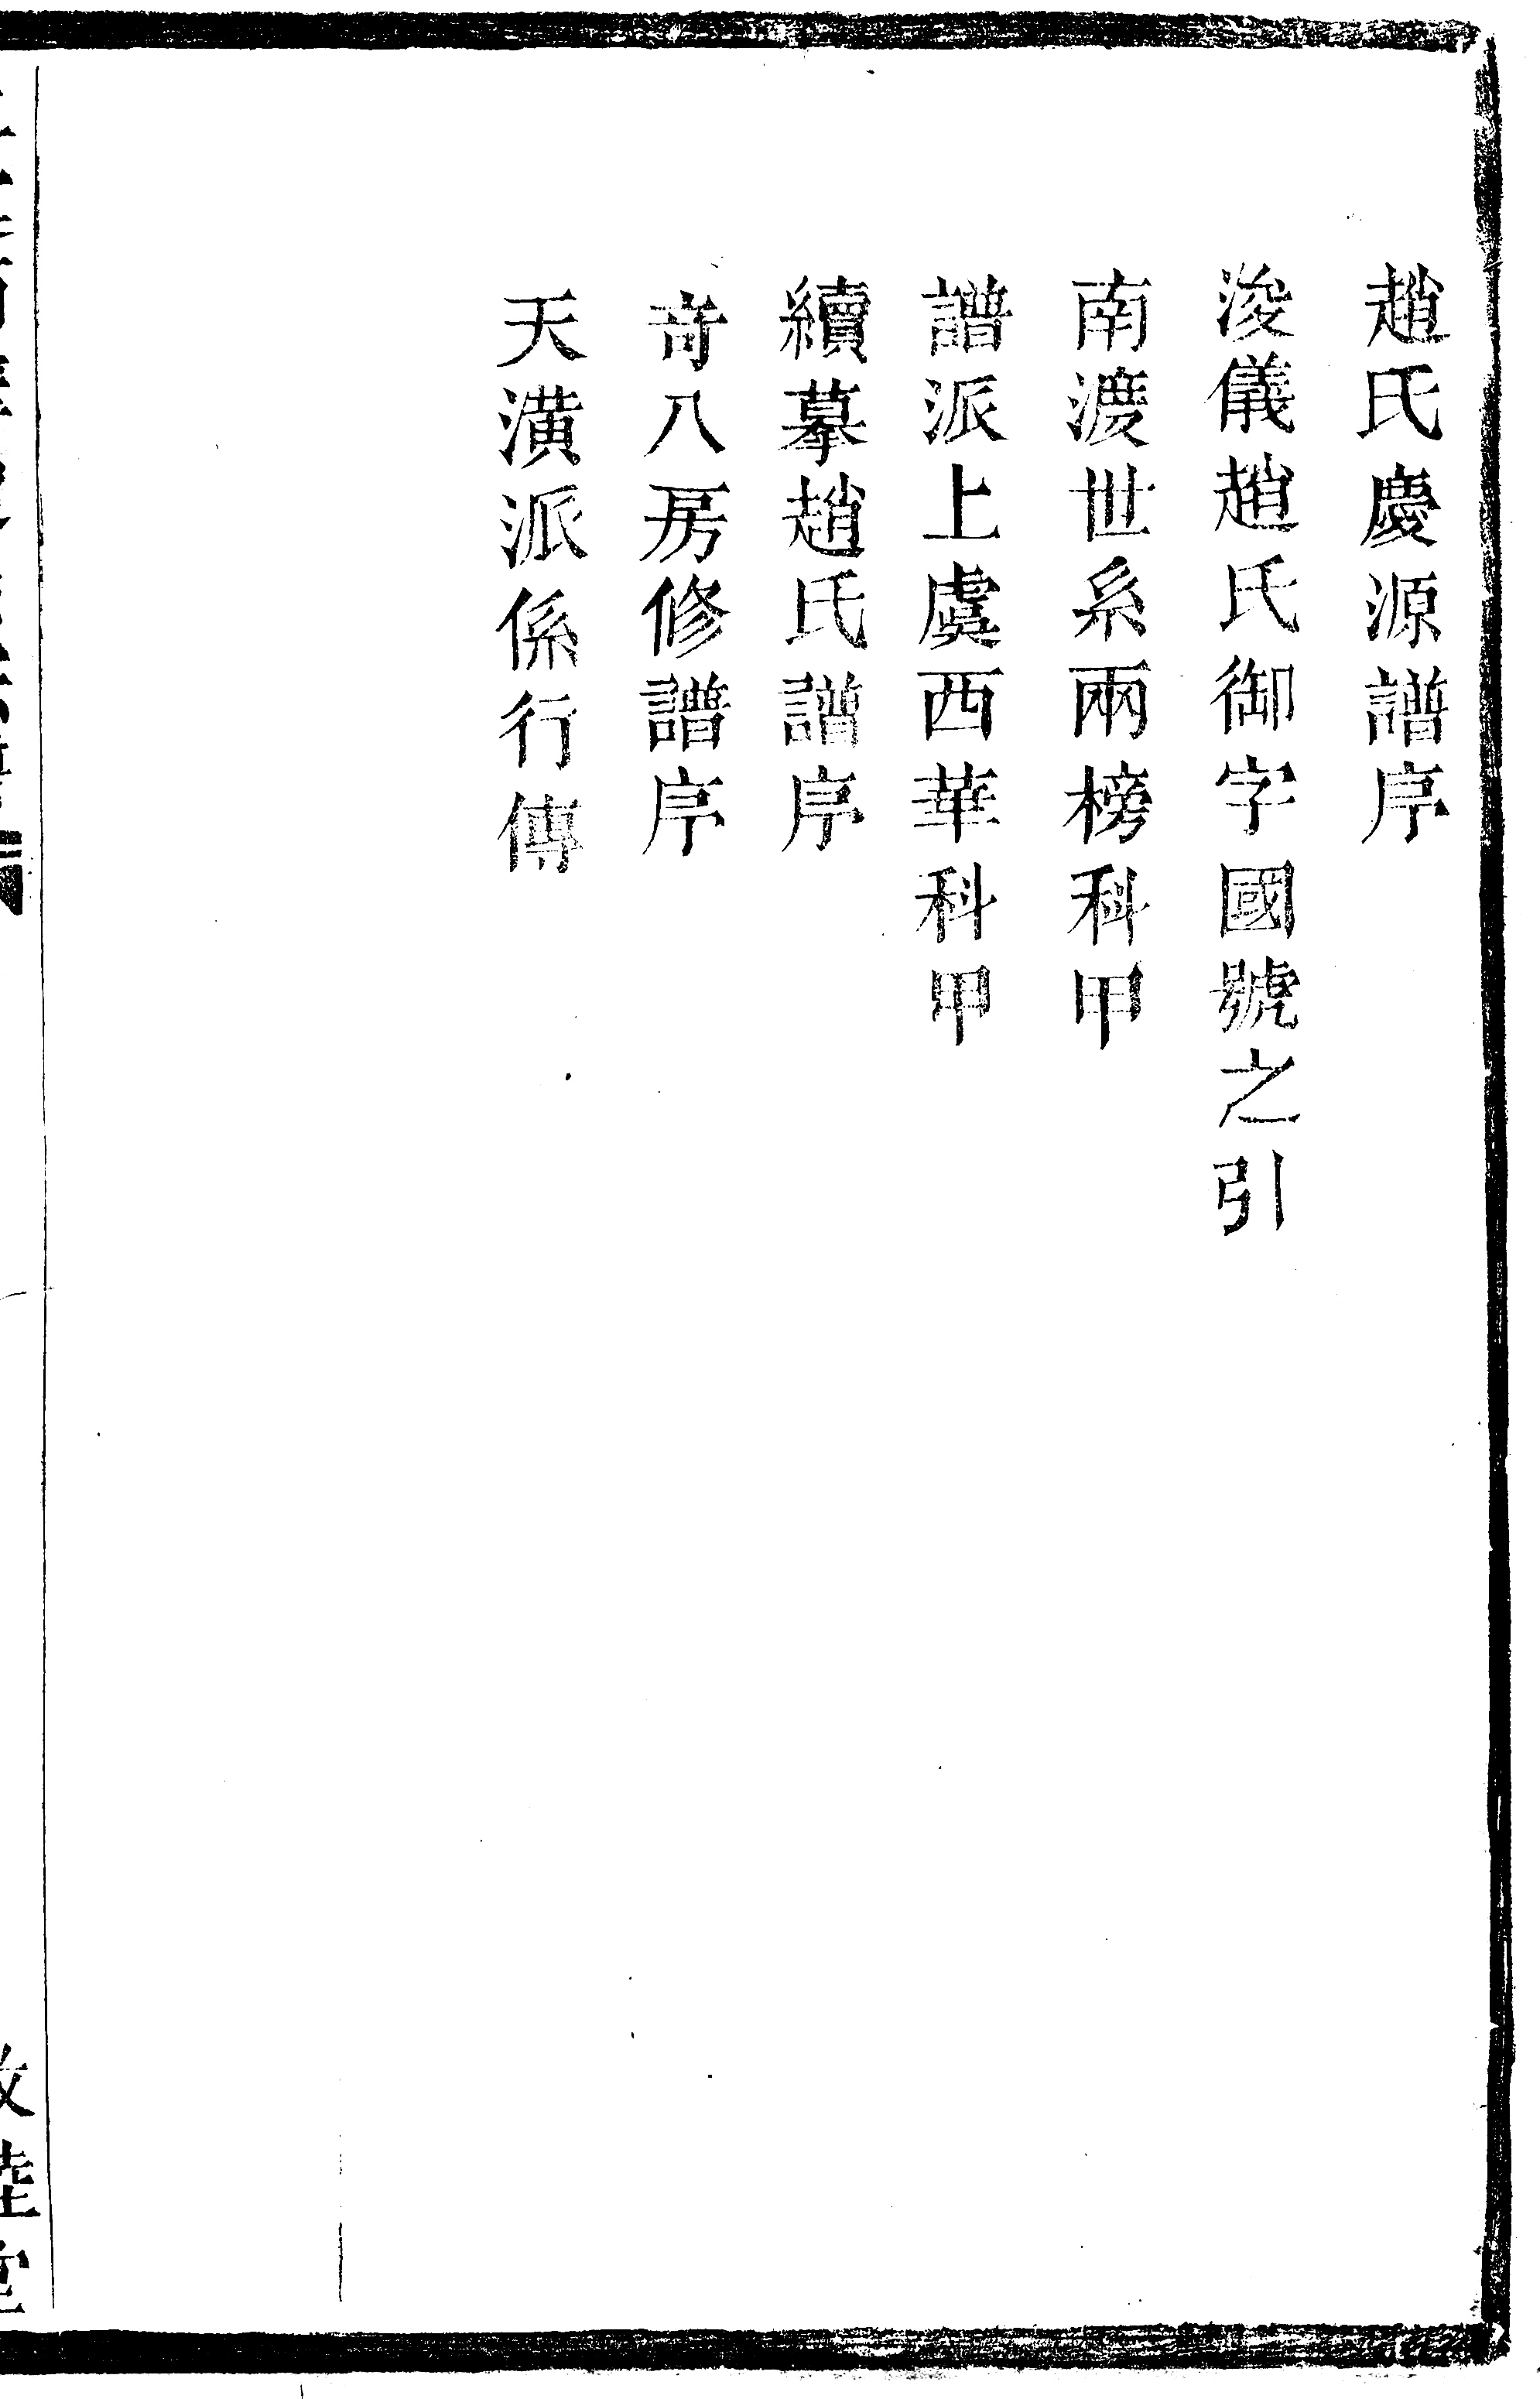 趙氏慶源譜序
浚儀趙氏御字國號之引
南渡世系兩榜科甲
譜派上虞西華科甲
續摹趙氏譜序
奇八房修譜序
天潢派係行傳
睦堂